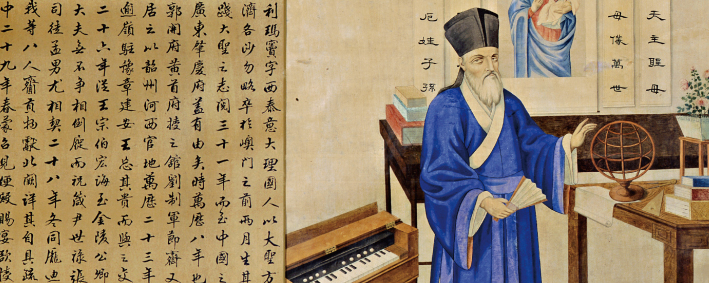 天主聖母
母像萬世
厄娃子孫
利瑪竇字西泰意大理國人以大聖方
濟各沙勿略卒於嶼門之前兩月生其
踐大聖之志閱三十一年而至中國之
廣東肇慶府蓋有由矣時萬曆八年也
郭開府黃首府接之館劉制軍節齋又
居之以韶州河西官地萬曆二十三年
逾嶺駐豫章建安王忘其貴而與之交
二十六年從王宗伯宏海至金陵公卿
大夫無不爭相倒屐而祝歲尹世祿張
司徒孟男尤相契二十八年冬同龐迪
我等八人齎貢物獻北闕詳其自具疏
中二十九年春蒙召見便殿賜宴歌陵